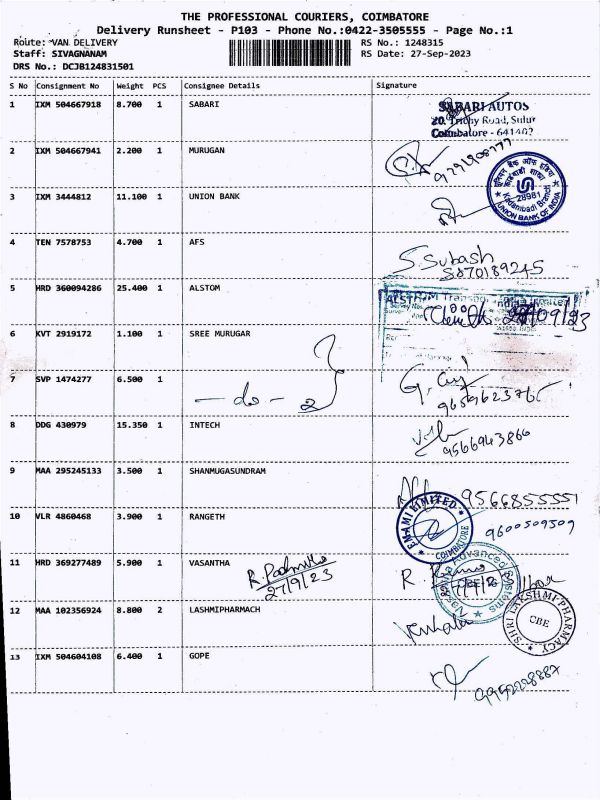 THE PROFESSIONAL COURIERS, COIMBATORE
Delivery Runsheet - P103 - Phone No.:0422-3505555 - Page No.:1
Route: VAN DELIVERY RS No.: 1248315
Staff: SIVAGNANAM RS Date: 27-Sep-2023
DRS No.: DCJB124831501
S No Consignment No Weight PCS Consignee Details Signature
1 IXM 504667918 8.700 1 SABARI
SABARI AUTOS
20, Trichy Road, Sulur
Coimbatore - 641402
2 IXM 504667941 2.200 1 MURUGAN
3 IXM 3444812 11.100 1 UNION BANK
यूनियन बैंक ऑफ इंडिया
28981
Kadambadi Branch
UNION BANK OF INDIA
4 TEN 7578753 4.700 1 AFS
S. Subash
5 HRD 360094286 25.400 1 ALSTOM
ALSTOM Transport India Limited
27/09/23
6 KVT 2919172 1.100 1 SREE MURUGAR
7 SVP 1474277 6.500 1
- do - 2
8 DDG 430979 15.350 1 INTECH
9566943866
9 MAA 295245133 3.500 1 SHANMUGASUNDRAM
9566855551
10 VLR 4860468 3.900 1 RANGETH
EMAMI LIMITED
COIMBATORE
9600509509
11 HRD 369277489 5.900 1 VASANTHA
27/9/23
Advanced Systems
12 MAA 102356924 8.800 2 LASHMIPHARMACH
SHRI LAKSHMI PHARMACY
CBE
13 IXM 504604108 6.400 1 GOPE
9952228887